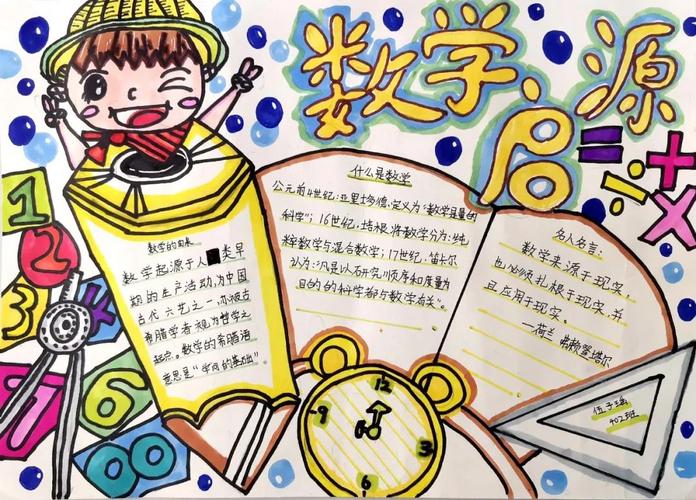 数学、启源
什么是数学
公元前4世纪:亚里士多德:定义为"数学是量的
科学";16世纪,培根将数学分为:"纯
粹数学与混合数学;17世纪,笛卡尔
认为:"凡是以研究顺序和度量为
目的的科学都与数学有关"。
数学的由来
数学起源于人类早
期的生产活动,为中国
古代六艺之一,亦被古
希腊学者视为哲学之
起点。数学的希腊语
意思是"学问的基础"
名人名言:
数学来源于现实,
也必须扎根于现实,并
且应用于现实。
——荷兰 弗赖登塔尔
= + ÷ ×
1
2
3
4
6
9
00
12
9
3
6
402班